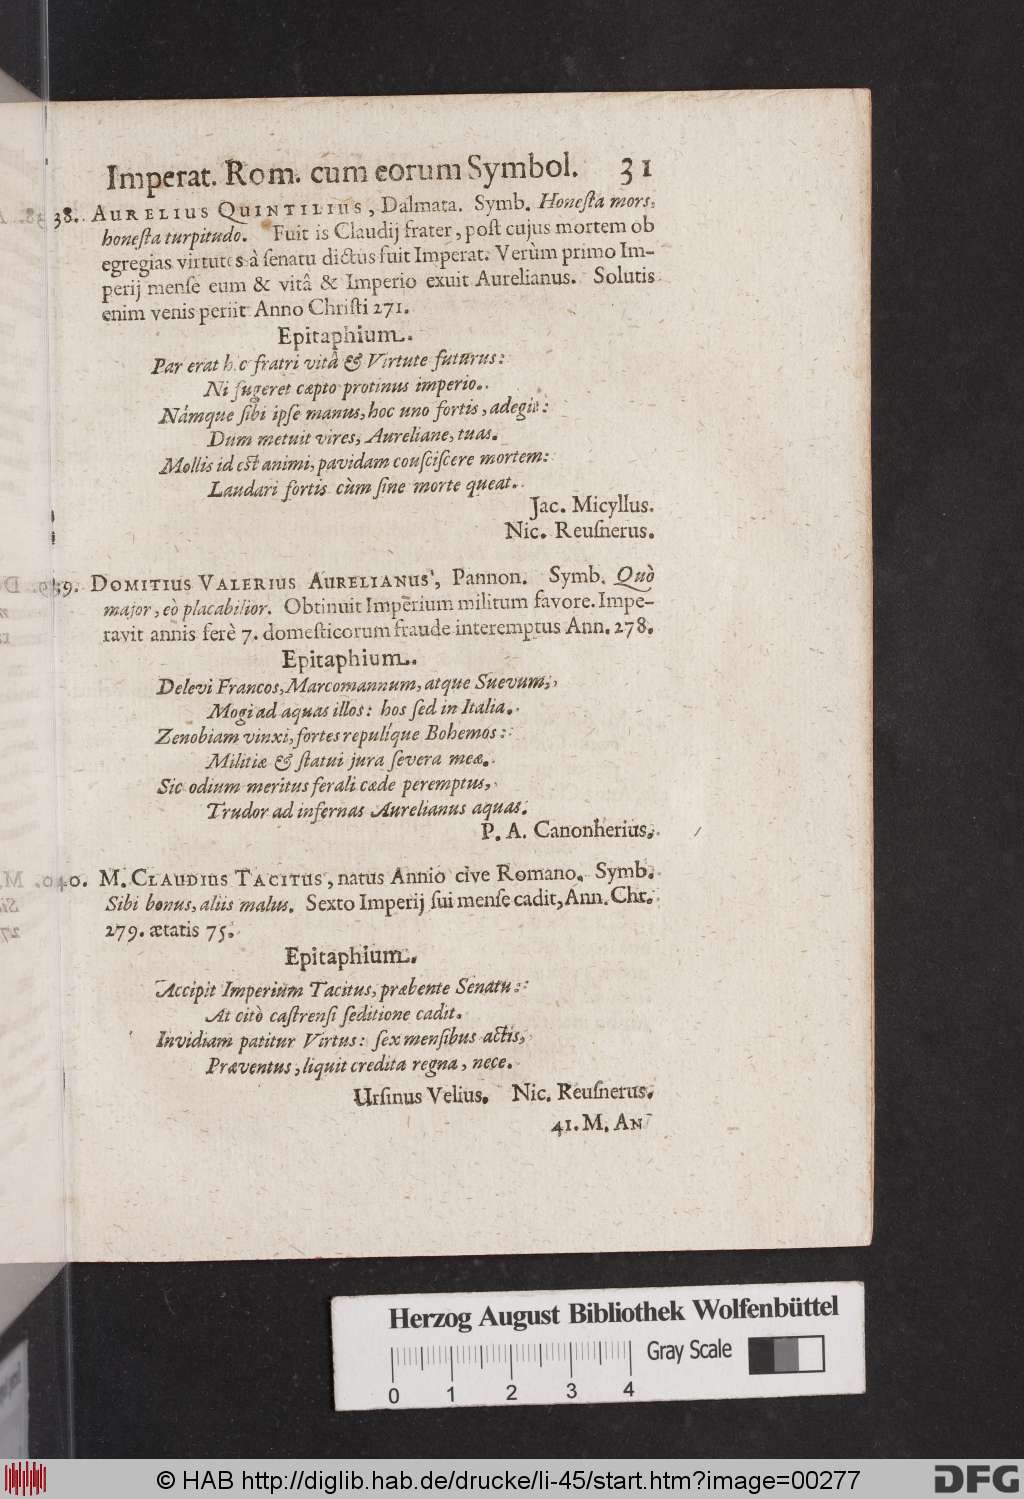 Imperat. Rom. cum eorum Symbol. 31
38. AURELIUS QUINTILIUS, Dalmata. Symb. Honeſta mors,
honeſta turpitudo. Fuit is Claudij frater, poſt cujus mortem ob
egregias virtutes à ſenatu dictus fuit Imperat. Verùm primo Im-
perij menſe eum & vitâ & Imperio exuit Aurelianus. Solutis
enim venis periit Anno Chriſti 271.
Epitaphium.
Par erat hic fratri vitâ & Virtute futurus:
Ni fugeret cæpto protinus imperio.
Námque ſibi ipſe manus, hoc uno fortis, adegit:
Dum metuit vires, Aureliane, tuas.
Mollis id eſt animi, pavidam couſciſcere mortem:
Laudari fortis cùm ſine morte queat.
Jac. Micyllus.
Nic. Reuſnerus.
39. DOMITIUS VALERIUS AURELIANUS, Pannon. Symb. Quò
major, eò placabilior. Obtinuit Imperium militum favore. Impe-
ravit annis ferè 7. domeſticorum fraude interemptus Ann. 278.
Epitaphium.
Delevi Francos, Marcomannum, atque Suevum,
Mogi ad aquas illos: hos ſed in Italia.
Zenobiam vinxi, fortes repulíque Bohemos:
Militiæ & ſtatui jura ſevera meæ.
Sic odium meritus ferali cæde peremptus,
Trudor ad infernas Aurelianus aquas.
P. A. Canonherius.
40. M. CLAUDIUS TACITUS, natus Annio cive Romano. Symb.
Sibi bonus, aliis malus. Sexto Imperij ſui menſe cadit, Ann. Chr.
279. ætatis 75.
Epitaphium.
Accipit Imperium Tacitus, præbente Senatu:
At citò caſtrenſi ſeditione cadit.
Invidiam patitur Virtus: ſex menſibus actis,
Præventus, liquit credita regna, nece.
Urſinus Velius. Nic. Reuſnerus.
41. M. AN
Herzog August Bibliothek Wolfenbüttel
Gray Scale
0 1 2 3 4
© HAB http://diglib.hab.de/drucke/li-45/start.htm?image=00277
DFG